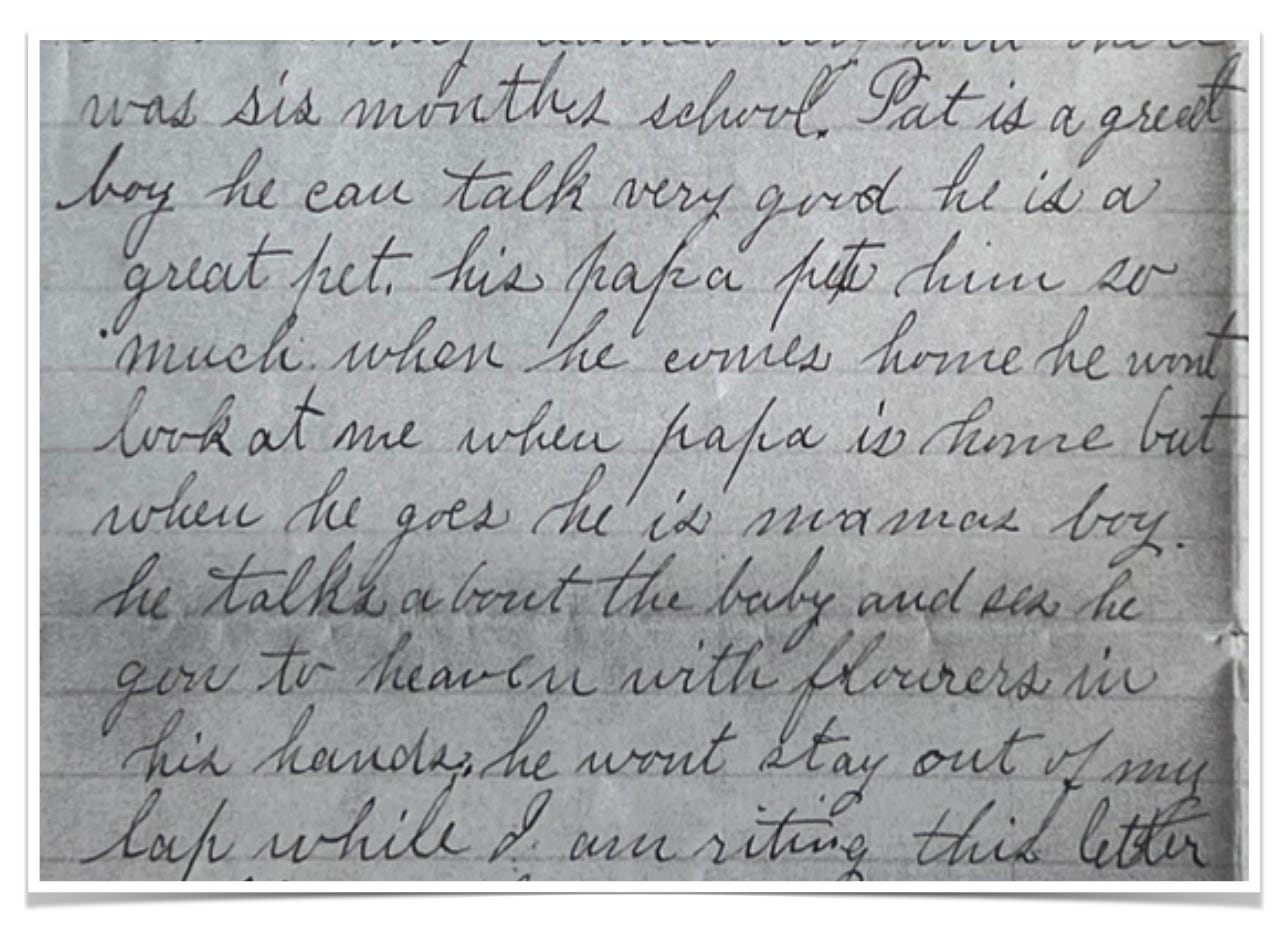 was six months school. Pat is a great
boy he can talk very good he is a
great pet. his papa pets him so
much when he comes home he wont
look at me when papa is home but
when he goes he is mamas boy.
he talks about the baby and ses he
gon to heaven with flourers in
his hands. he wont stay out of my
lap while I am riting this letter